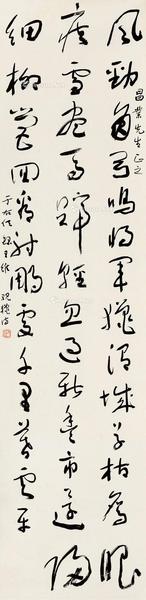 昌業先生正之
風勁角弓鳴將軍獵渭城草枯鷹眼
疾雪盡馬蹄輕忽過新豐市還歸
細柳營回看射鵰處千里暮雲平
于右任 録王維
觀獵詩